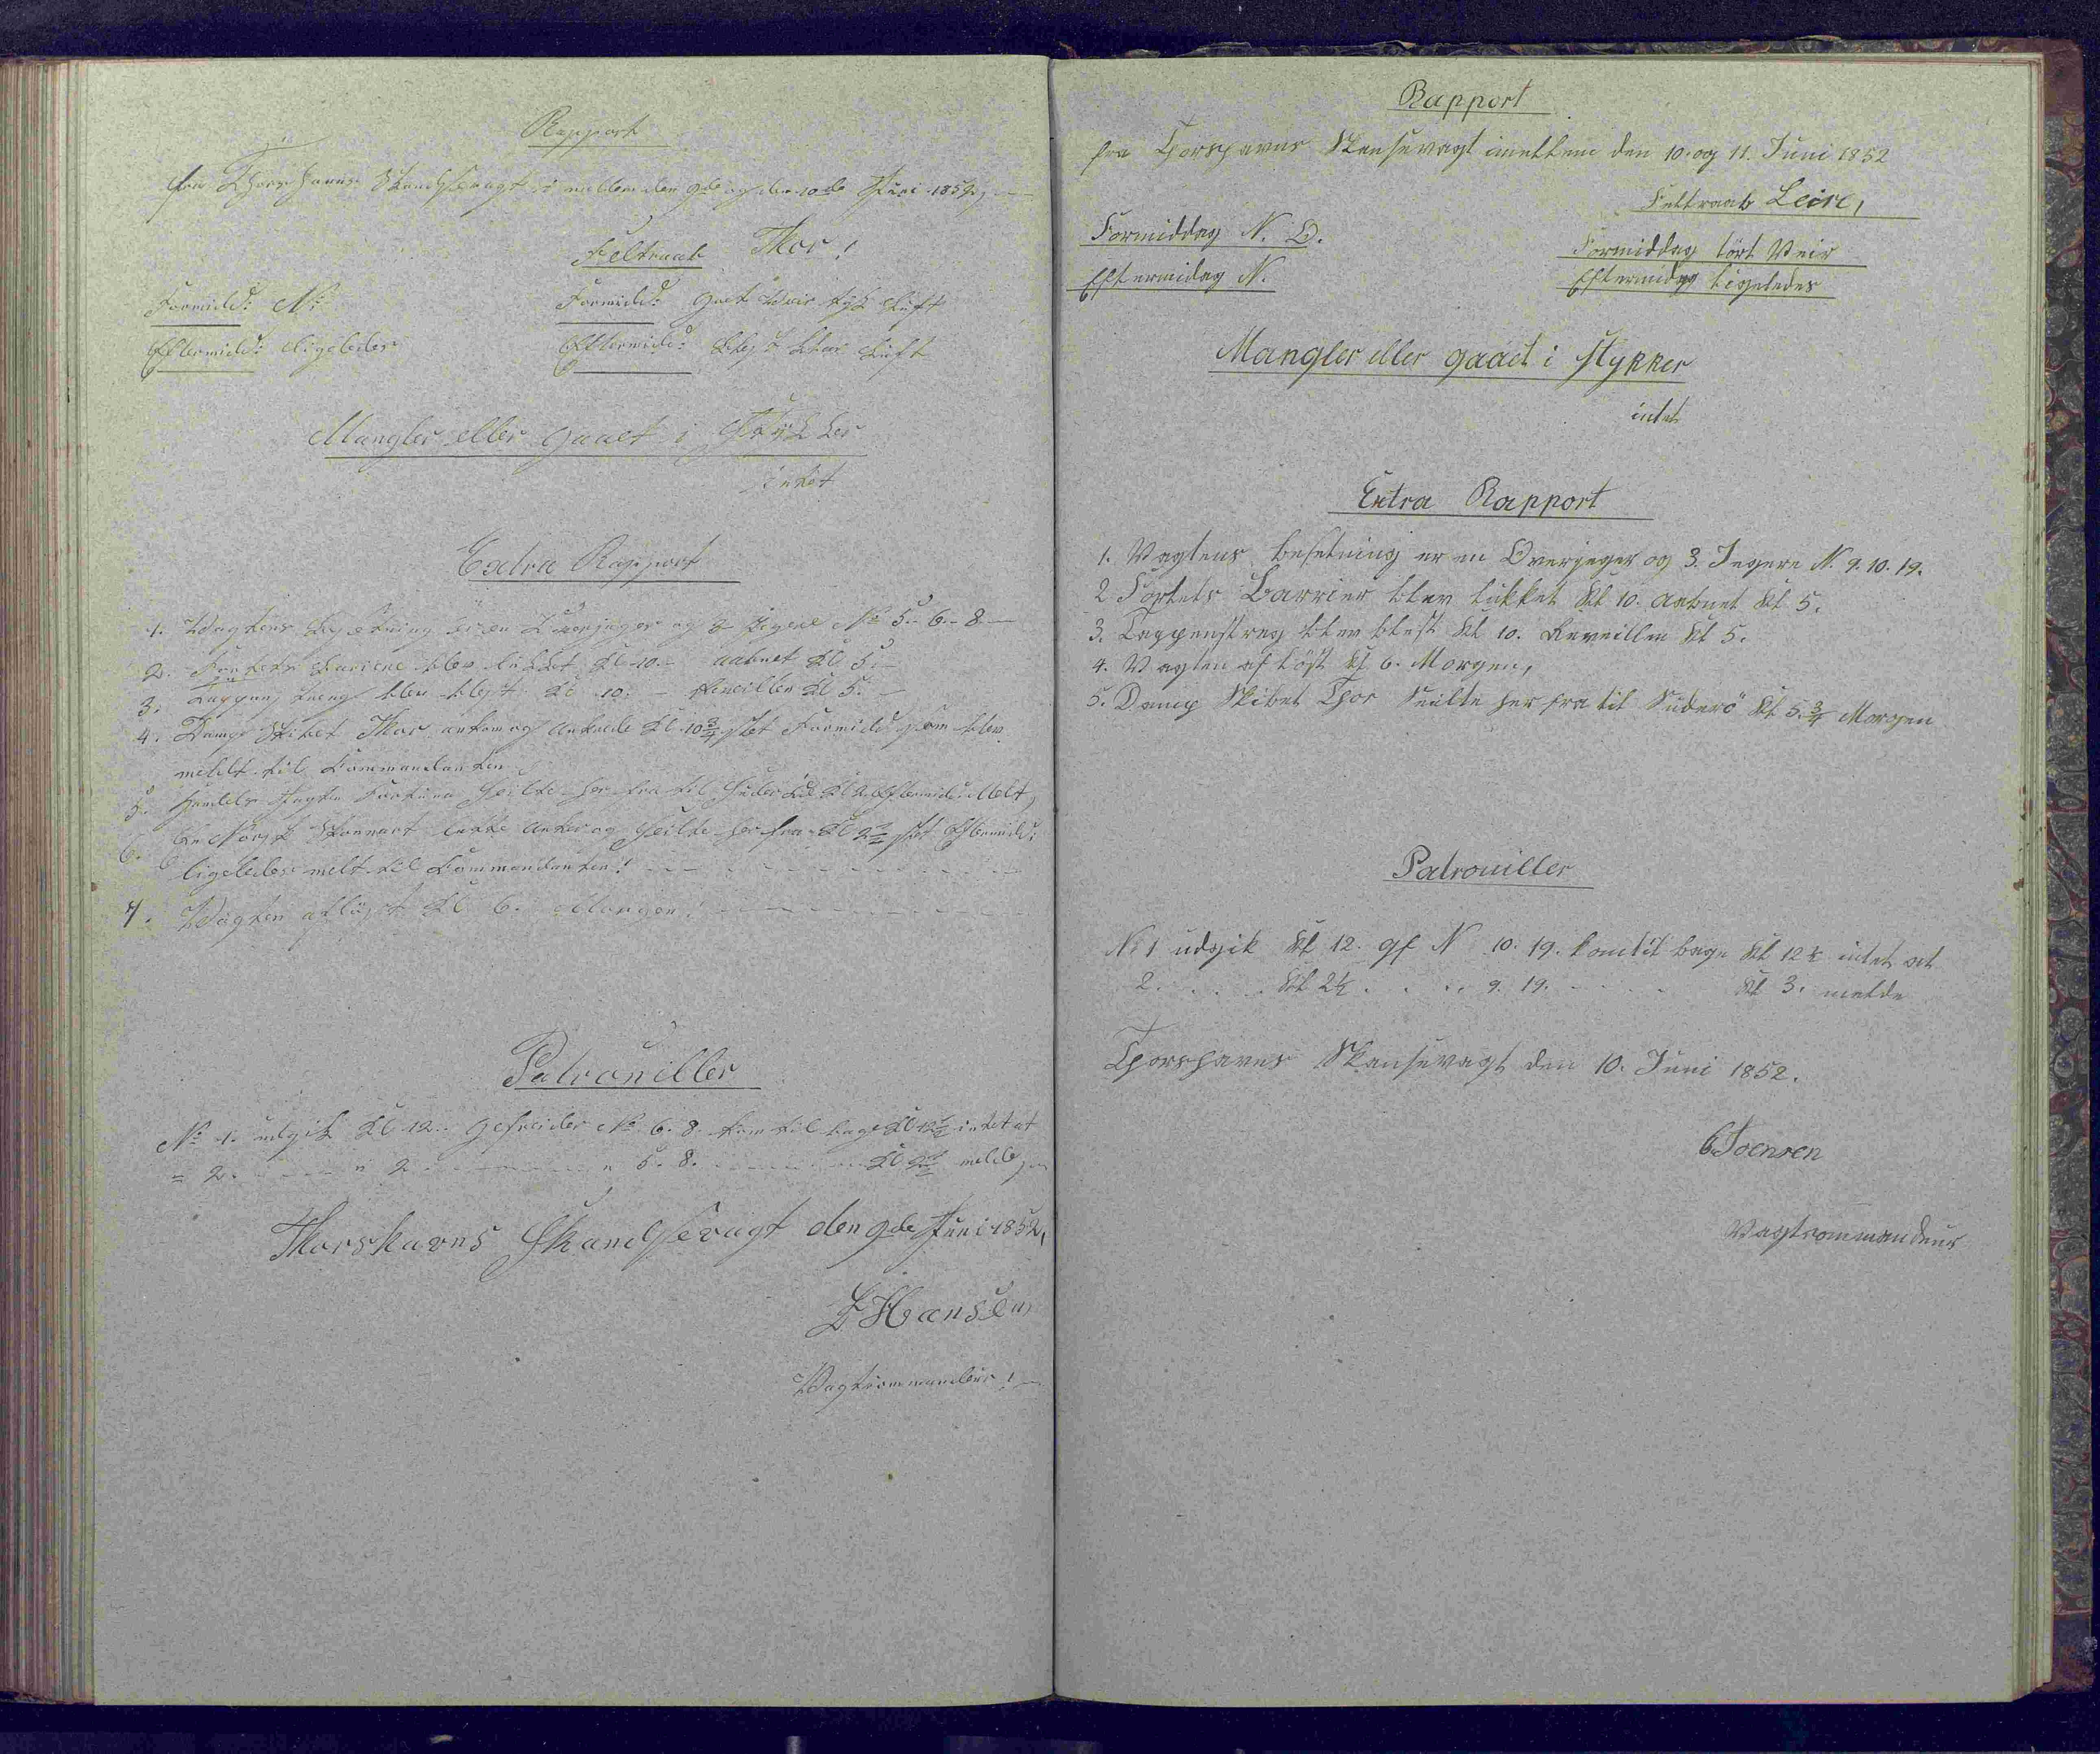 Rapport
fra Thorshavns Skandsevagt i mellem den 9de og den 10de Juni 1852,
Feltraab Thor!
Formidd: N:
Formidd: Goet Veir tyk Luft
Eftermidd: Ligeledes
Eftermidd: klar Luft
Mangler eller gaaet i Stykker
intet
Extra Rapport
1. Vagtens Besetning er en Overjæger og 3 Jegere No 5-6-8-
2. Fortets Bariere blev lukket Kl 10- aabnet Kl 5.-
3. Tappenstreg blev blest Kl 10.- Reveillen Kl 5.-
4. Damp Skibet Thor ankom og Ankrede Kl 10 3/4 slet Formidd som blev
meldt til Kommandanten
5. Handels Jagten Fortuna Seilte her fra til Suderöe Kl 2 Eftermidd: Melt,
6. En Norsk Skonnart lette Anker og Seilte her fra Kl Eftermidd:
ligeledes melt til Kommandanten!
7. Vagten aflöst Kl 6. Morgen!
Patrouiller
No 1. udgik Kl 12. Gefreider No 6. 8. kom tilbage Kl 12 1/2 intet at
= 2. " 2 " 5. 8. Kl 2 1/2 melde,
Thorshavns Skandsevagt den 9de Juni 1852,
Hansen
Vagtcommandeur!
Rapport
fra Thorshavns Skansevagt imellem den 10. og 11. Juni 1852
Feltraab Leire,
Formiddag N. O.
Formiddag tört Veir
Eftermidag N.
Eftermidag Ligeledes
Mangler eller gaaet i stykker
intet
Extra Rapport
1. Vagtens besetning er en Overjeger og 3. Jegere N. 9. 10. 19.
2 Fortets Barrier blev lukket Kl 10. aabnet Kl 5.
3. Tappenstreg blev blest Kl 10. Reveillen Kl 5.
4. Vagten aflöst Kl 6. Morgen,
5. Damp Skibet Thor Seilte her fra til Suderö Kl 5. 3/4 Morgen
Patrouiller
No 1 udgik Kl 12. gf N 10. 19. kom tilbage Kl 12 1/2 intet at
2. . . . . Kl 2 1/2 . . . . 9. 19. - - - - Kl 3. melde
Thorshavns Skansevagt den 10. Juni 1852.
Joensen
Vagtcommandeur